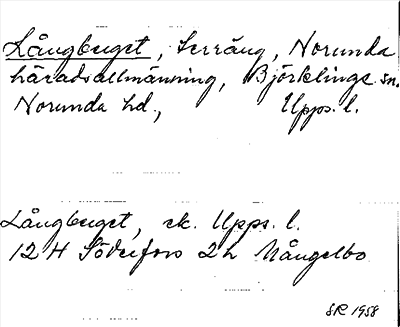 Långberget, terräng, Norunda
häradsallmänning, Björklinge sn.
Norunda hd., Upps. l.
Långberget, ek. Upps. l.
12 H Söderfors 2h Mångelbo
SR 1958